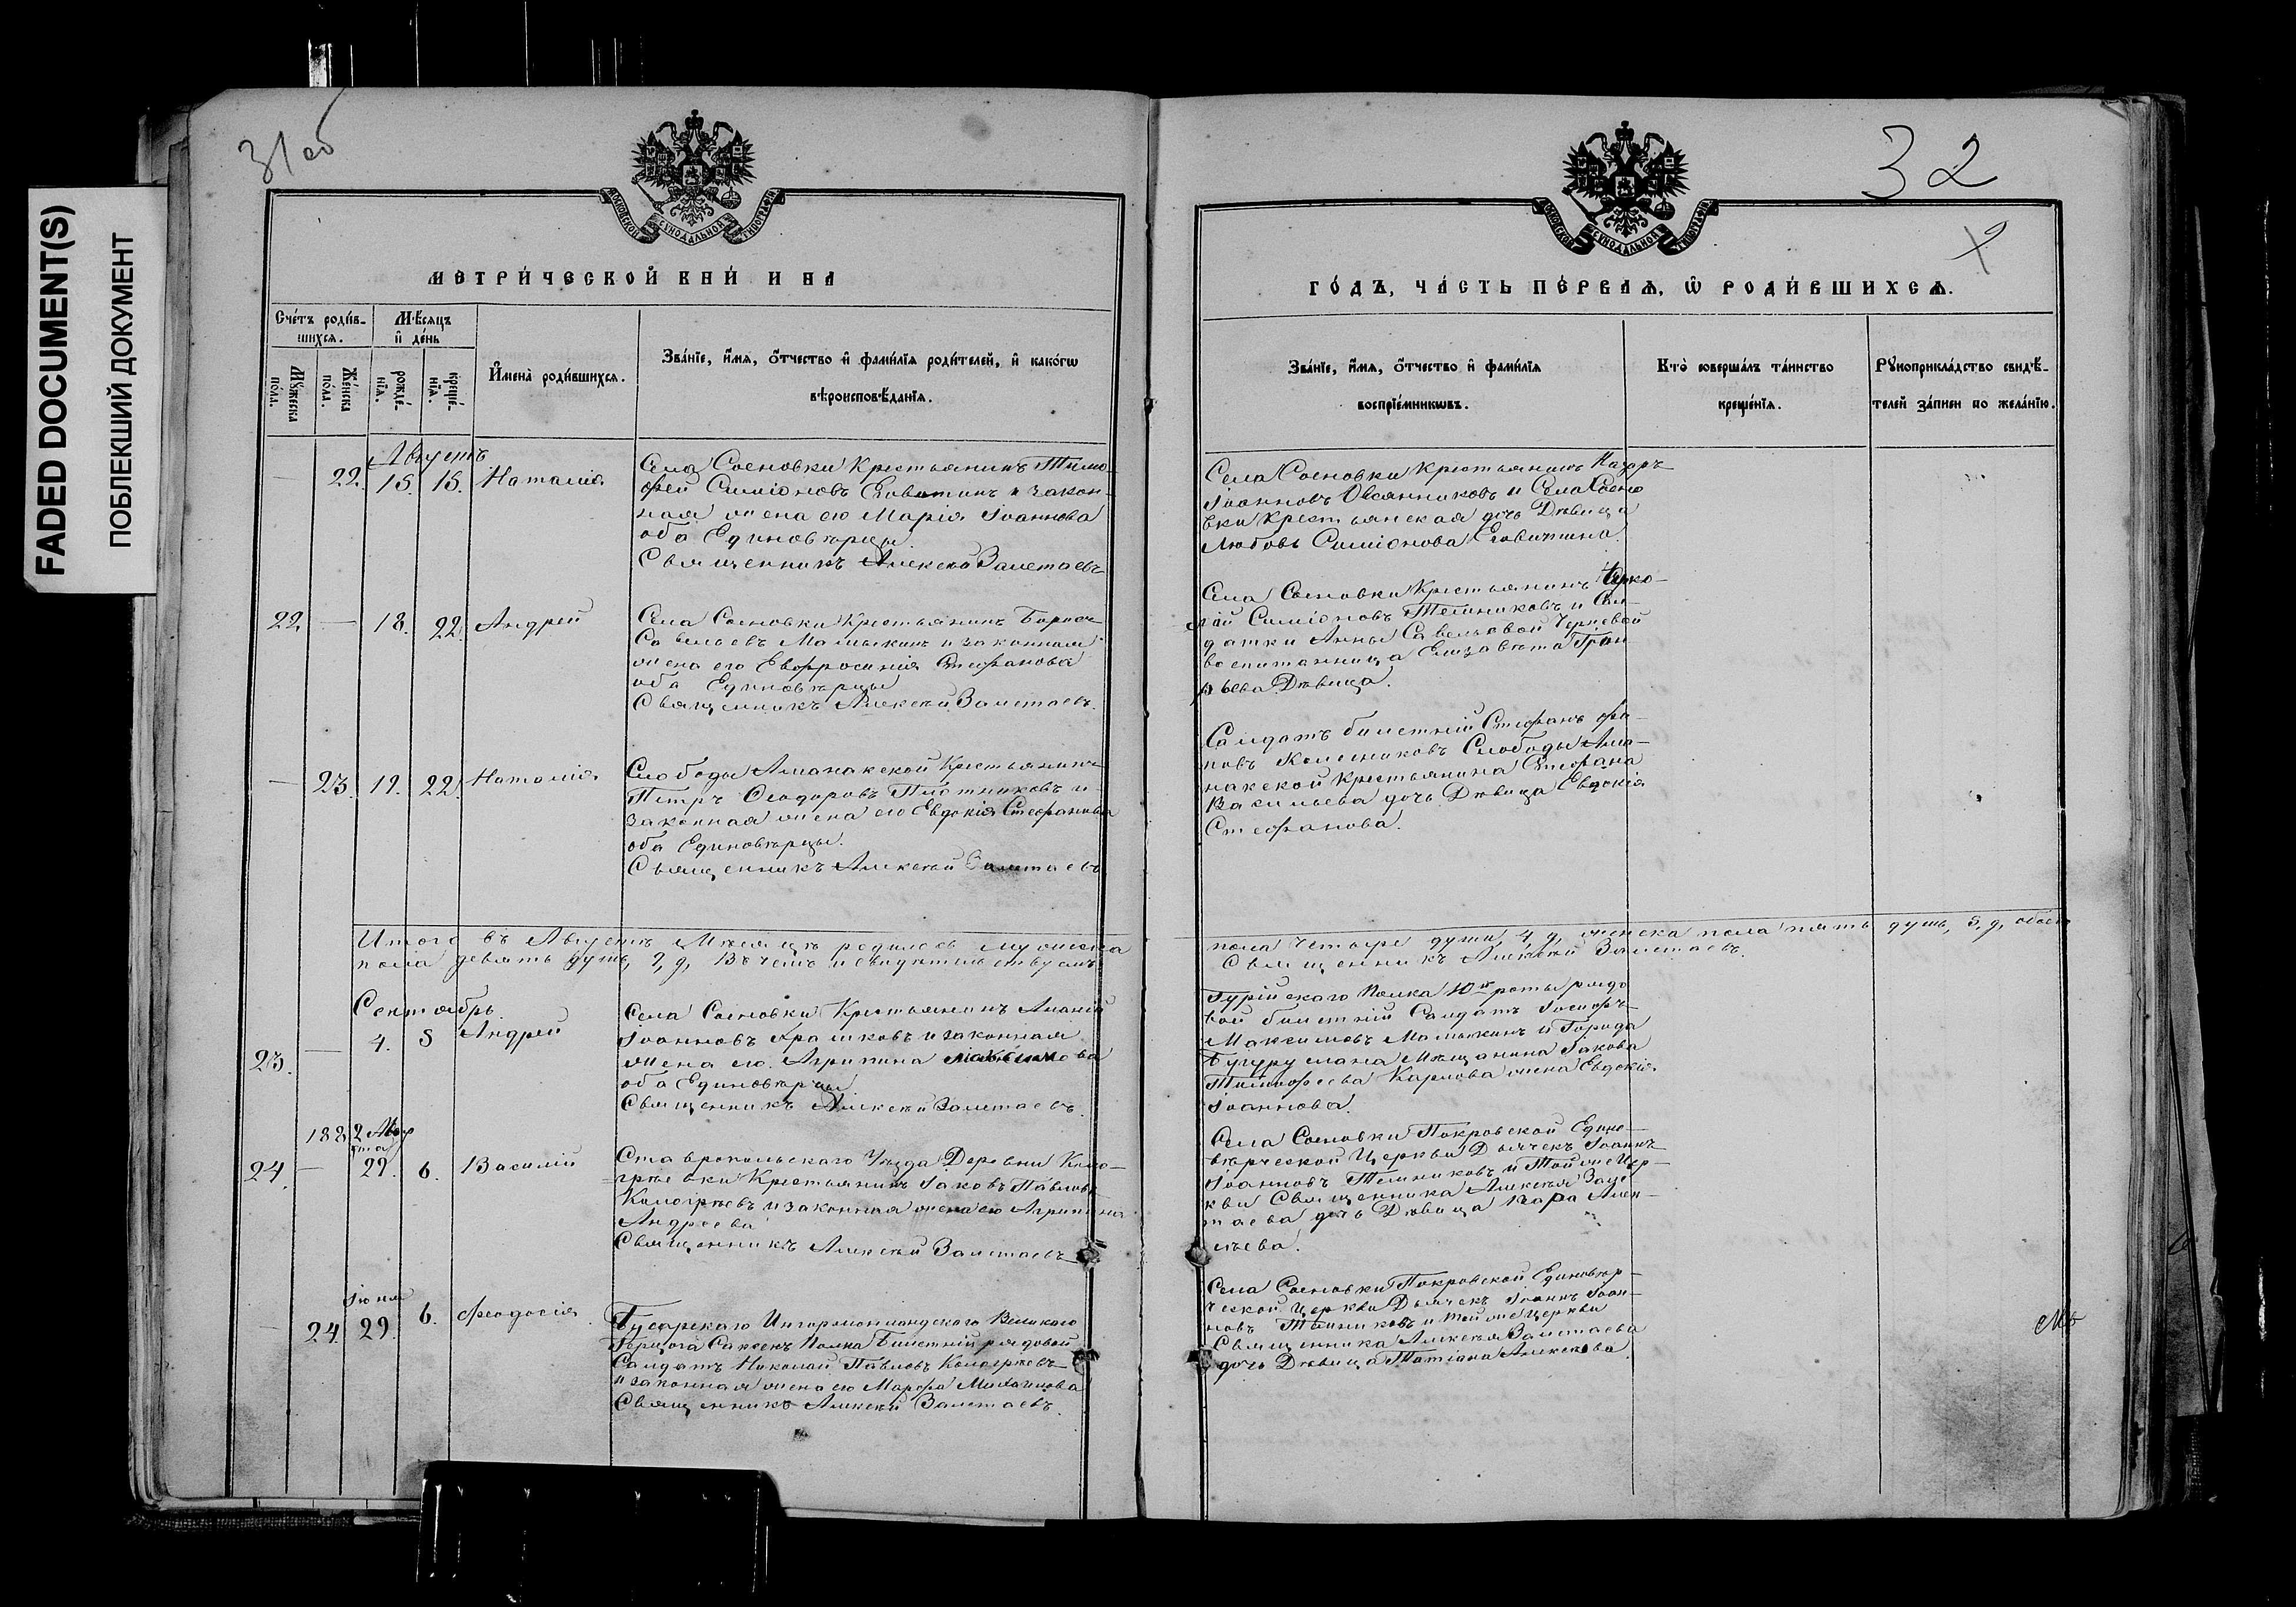 FADED DOCUMENT(S)
ПОБЛЕКШИЙ ДОКУМЕНТ
31об
МОСКОВСКОЙ СѴНОДАЛЬНОЙ ТИПОГРАФІИ
МЕТРИ́ЧЕСКОЙ КНИ́ И НА
Сче́тъ роди́в-
шихся.
Мѣ́сяцъ
и҆ де́нь
Мꙋ́жеска
по́ла.
Же́нска
по́ла.
рожде́-
нїѧ.
креще́-
нїѧ.
И҆мена̀ роди́вшихсѧ.
Зва́нїе, и҆́мѧ, ѻ҆́тчество и҆ фами́лїѧ роди́телей, и҆ како́гѡ
вѣроисповѣ́данїѧ.
Августъ
— 22. 15. 15. Наталія
Села Сосновки Крестьянинъ Тимо-
фей Симіоновъ Еловатинъ и закон-
ная жена его Марія Іоаннова
оба Единовѣрцы.
Священникъ Алексѣй Заметаевъ
22. — 18. 22. Андрей
Села Сосновки Крестьянинъ Борисъ
Савельевъ Малыкинъ и законная
жена его Евфросинія Стефанова
оба Единовѣрцы
Священникъ Алексѣй Заметаевъ.
— 23. 19. 22. Наталія
Слободы Аманакской Крестьянинъ
Петръ Ѳеодоровъ Плотниковъ и
законная жена его Евдокія Стефанова
оба Единовѣрцы.
Священникъ Алексѣй Заметаевъ
Итого въ Августѣ Мѣсяцѣ родилось мужеска
пола девять душъ, 9, д, Въ чемъ и свидѣтельствуемъ
Сентябрь.
23. — 4. 5 Андрей
Села Сосновки Крестьянинъ Ананій
Іоанновъ Храмковъ и законная
жена его Агрипина Максимова
оба Единовѣрцы
Священникъ Алексѣй Заметаевъ.
1882 Авгу
ста
24. — 29. 6. Василій
Ставропольскаго Уѣзда Деревни Коло-
грѣевки Крестьянинъ Іаковъ Павловъ
Кологрѣевъ и законная жена его Агрипина
Андреева
Священникъ Алексѣй Заметаевъ
Іюня
— 24. 29. 6. Феодосія.
Гусарскаго Ингерманландского Великаго
Герцога Саксенъ Полка Билетный рядовой
Салдатъ Николай Павловъ Кологрѣевъ
и законная жена его Марфа Михаилова
Священникъ Алексѣй Заметаевъ.
32
МОСКОВСКОЙ СѴНОДАЛЬНОЙ ТИПОГРАФІИ
ГО́ДЪ, ЧА́СТЬ ПЕ́РВАѦ, Ѡ҆ РОДИ́ВШИХСѦ.
Зва́нїе, и҆́мѧ, ѻ҆́тчество и҆ фами́лїѧ
воспрїе́мникѡвъ.
Кто̀ соверша́лъ та́инство
креще́нїѧ.
Рꙋкоприкла́дство свидѣ́-
телей за́писи по жела́нїю.
Села Сосновки Крестьянинъ Назаръ
Іоанновъ Овсянниковъ и Села Сосно
вки Крестьянская дочь Дѣвица
Любовь Симіонова
Села Сосновки Крестьянинъ
Симіоновъ Телиниковъ и Сал-
датки Анны Савельевой Черневой
воспитанница Елизавета Гри
рьева Дѣвица.
Салдатъ билетный Стефанъ
Колесниковъ Слободы Ама-
накской Крестьянина Стефана
Васильева дочь Дѣвица Евдокія
Стефанова.
пола четыре души, 4, д, женска пола пять душъ, 5, д, обоего
Священникъ Алексѣй Заметаевъ.
Гурійскаго Полка 10й роты рядо
вой билетный Салдатъ Іосифъ
Максимовъ Малыкинъ и Города
Бугуруслана Мѣщанина Іакова
Тимофеева Карпова жена Евдокія
Іоаннова.
Села Сосновки Покровской Едино-
вѣрческой Церкви Дьячекъ Іоаннъ
Іоанновъ Телиниковъ и Той же Цер-
кви Священника Алексѣя Заме
таева дочь Дѣвица Вара Алек-
сѣева.
Села Сосновки Покровской Единовѣр-
ческой Церкви Дьячекъ Іоаннъ Іоан-
новъ Телиниковъ и той же Церкви
Священника Алексѣя Заметаева
дочь Дѣвица Татіана Алексѣева.